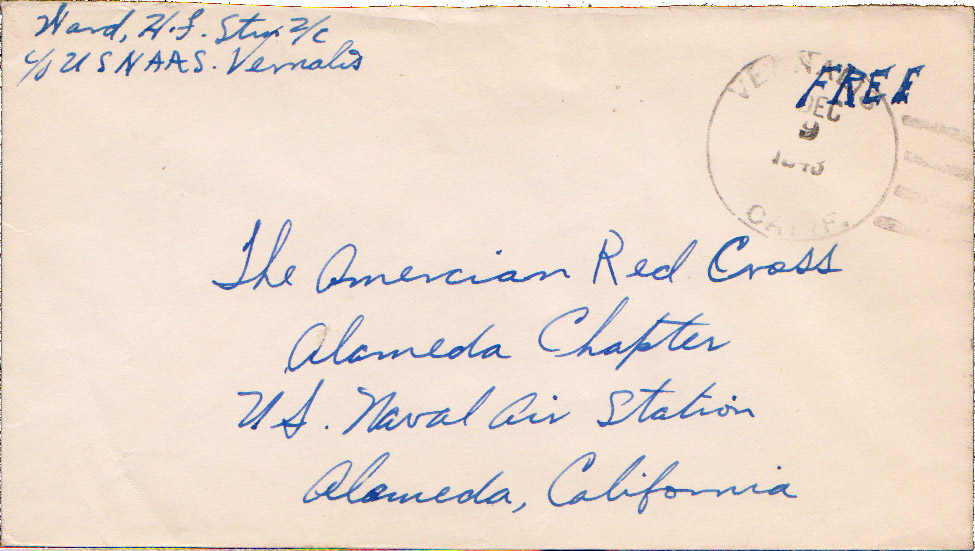 Ward, H.F. Stm 2/c
c/o USNAAS. Vernalis
FREE
VERNALIS
DEC
9
1943
CALIF.
The Amercian Red Cross
Alameda Chapter
U.S. Naval Air Station
Alameda, California